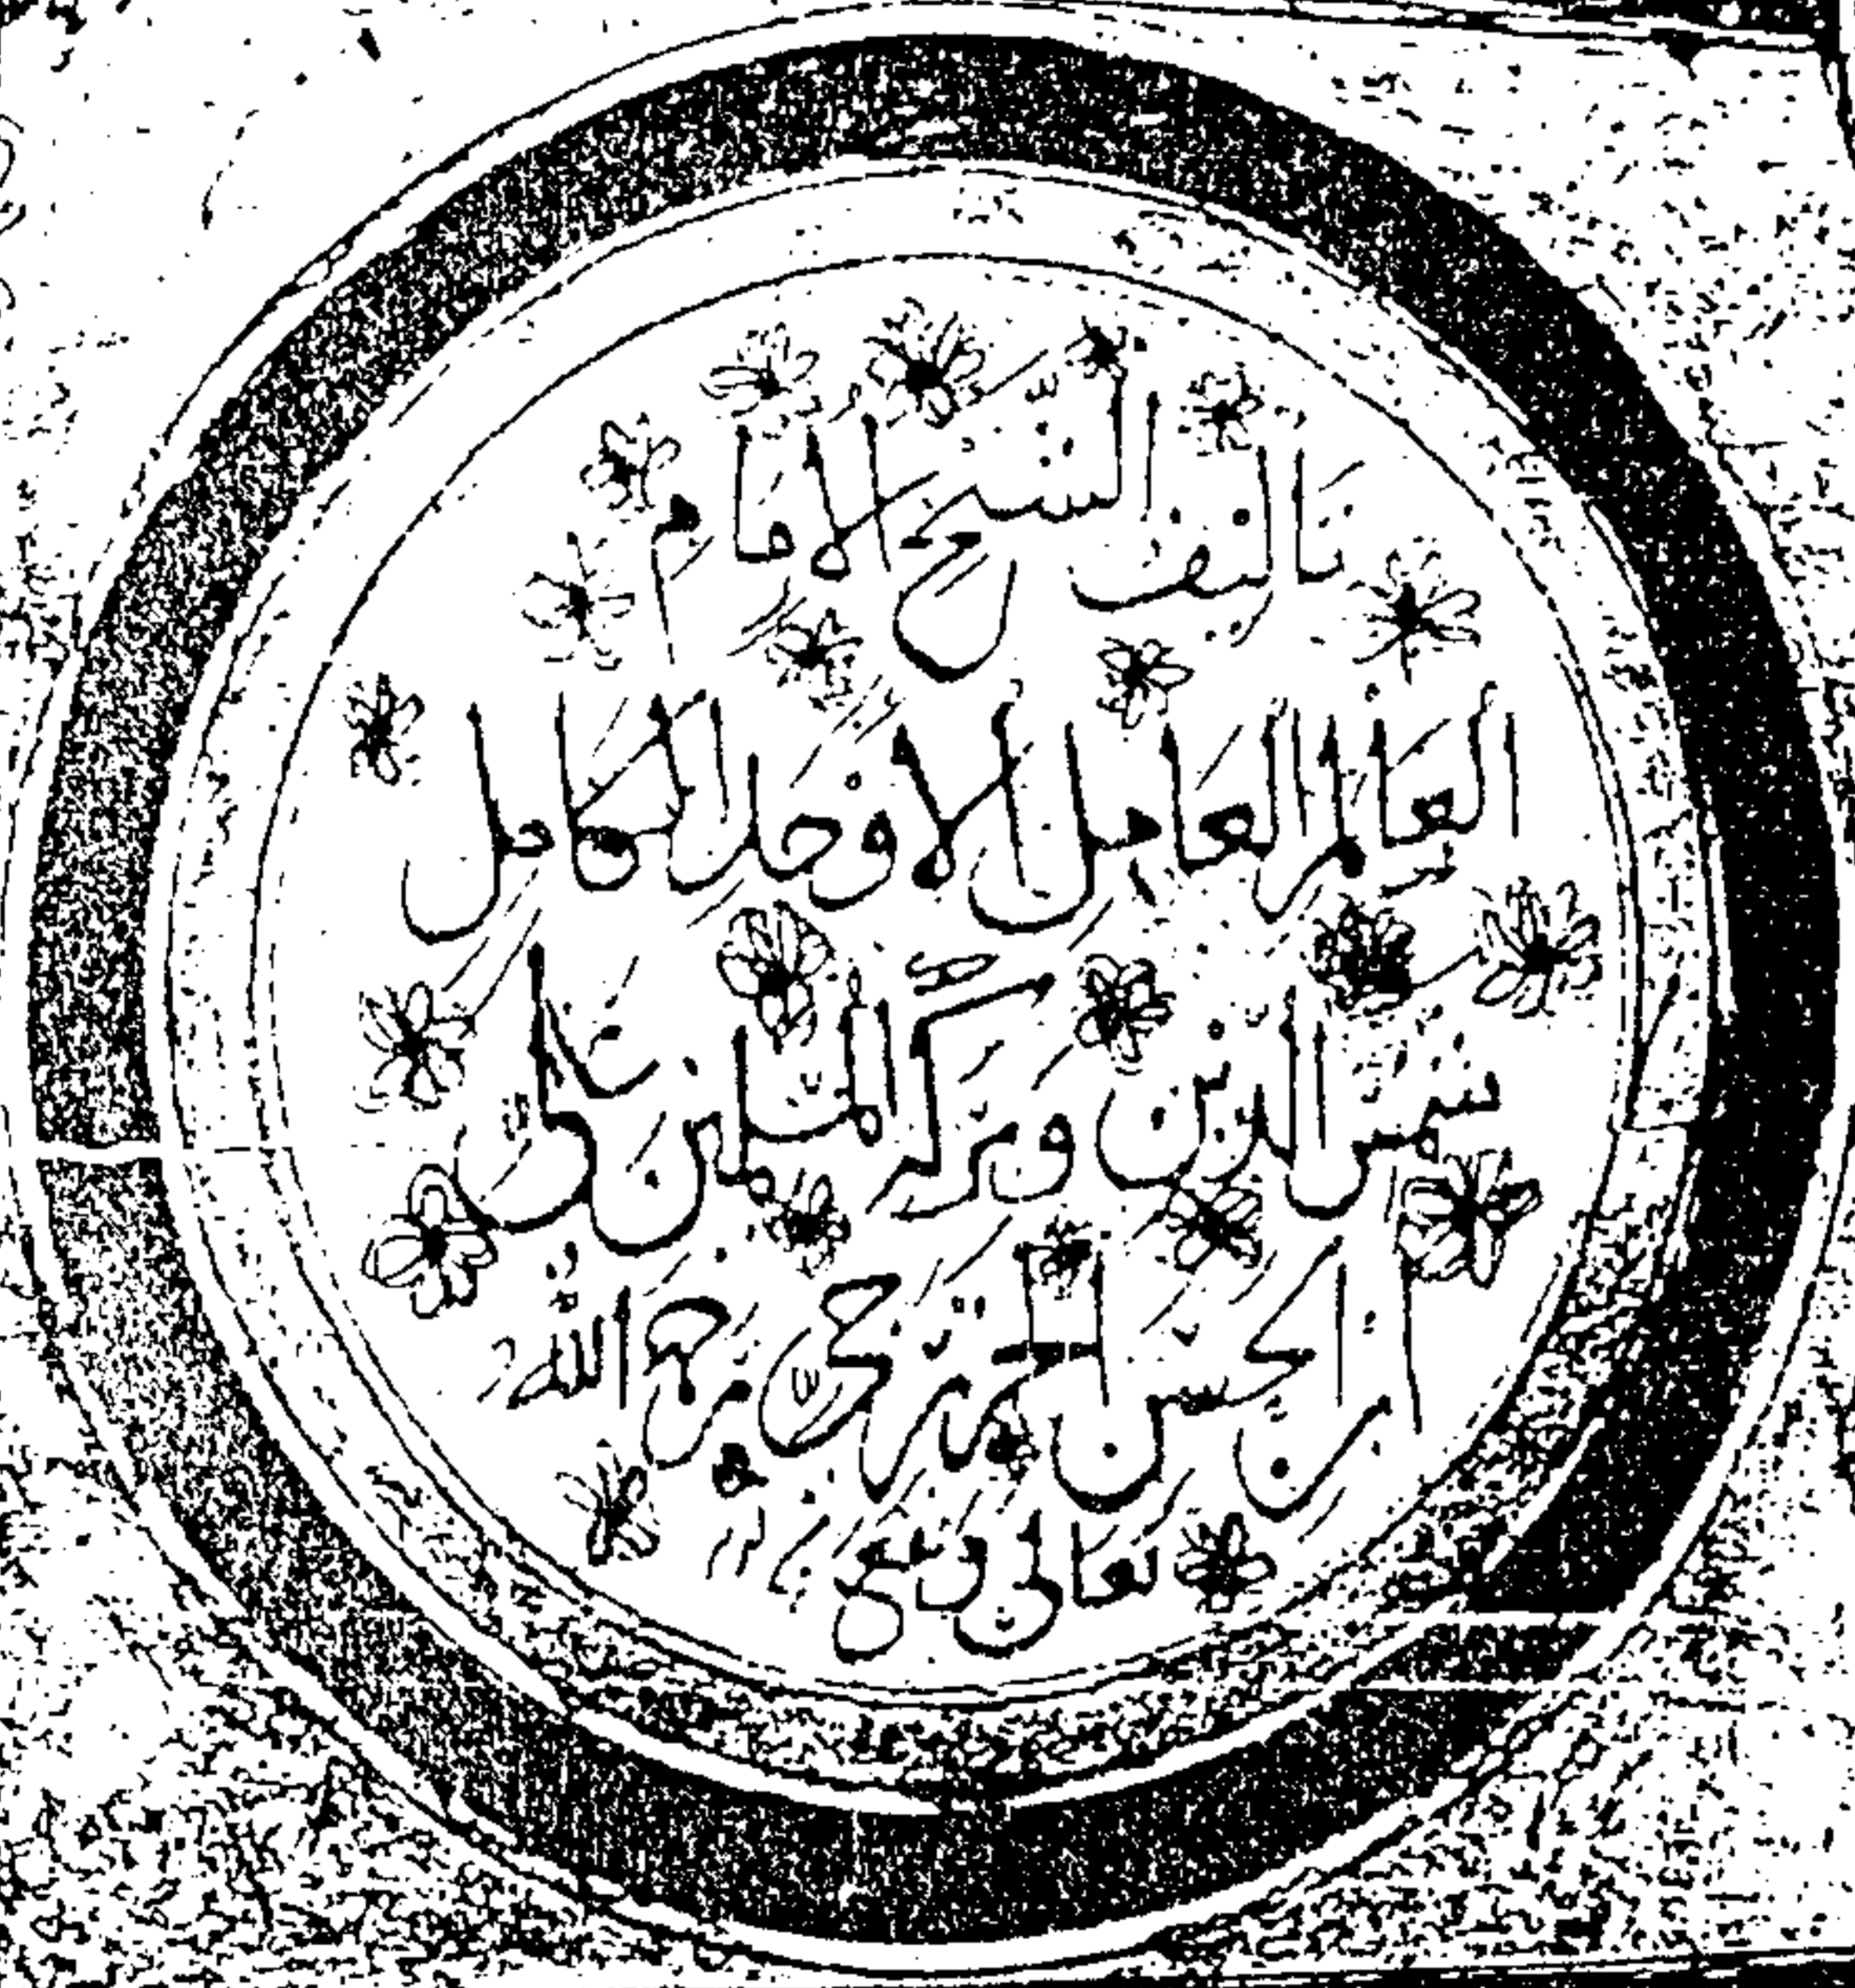 تاليف الشيخ الامام
العالم العامل الاوحد الكامل
شمس الدين وبركة المسلمين علي
ابن الحسن الخزرجي رحمه الله
تعالى ونفع